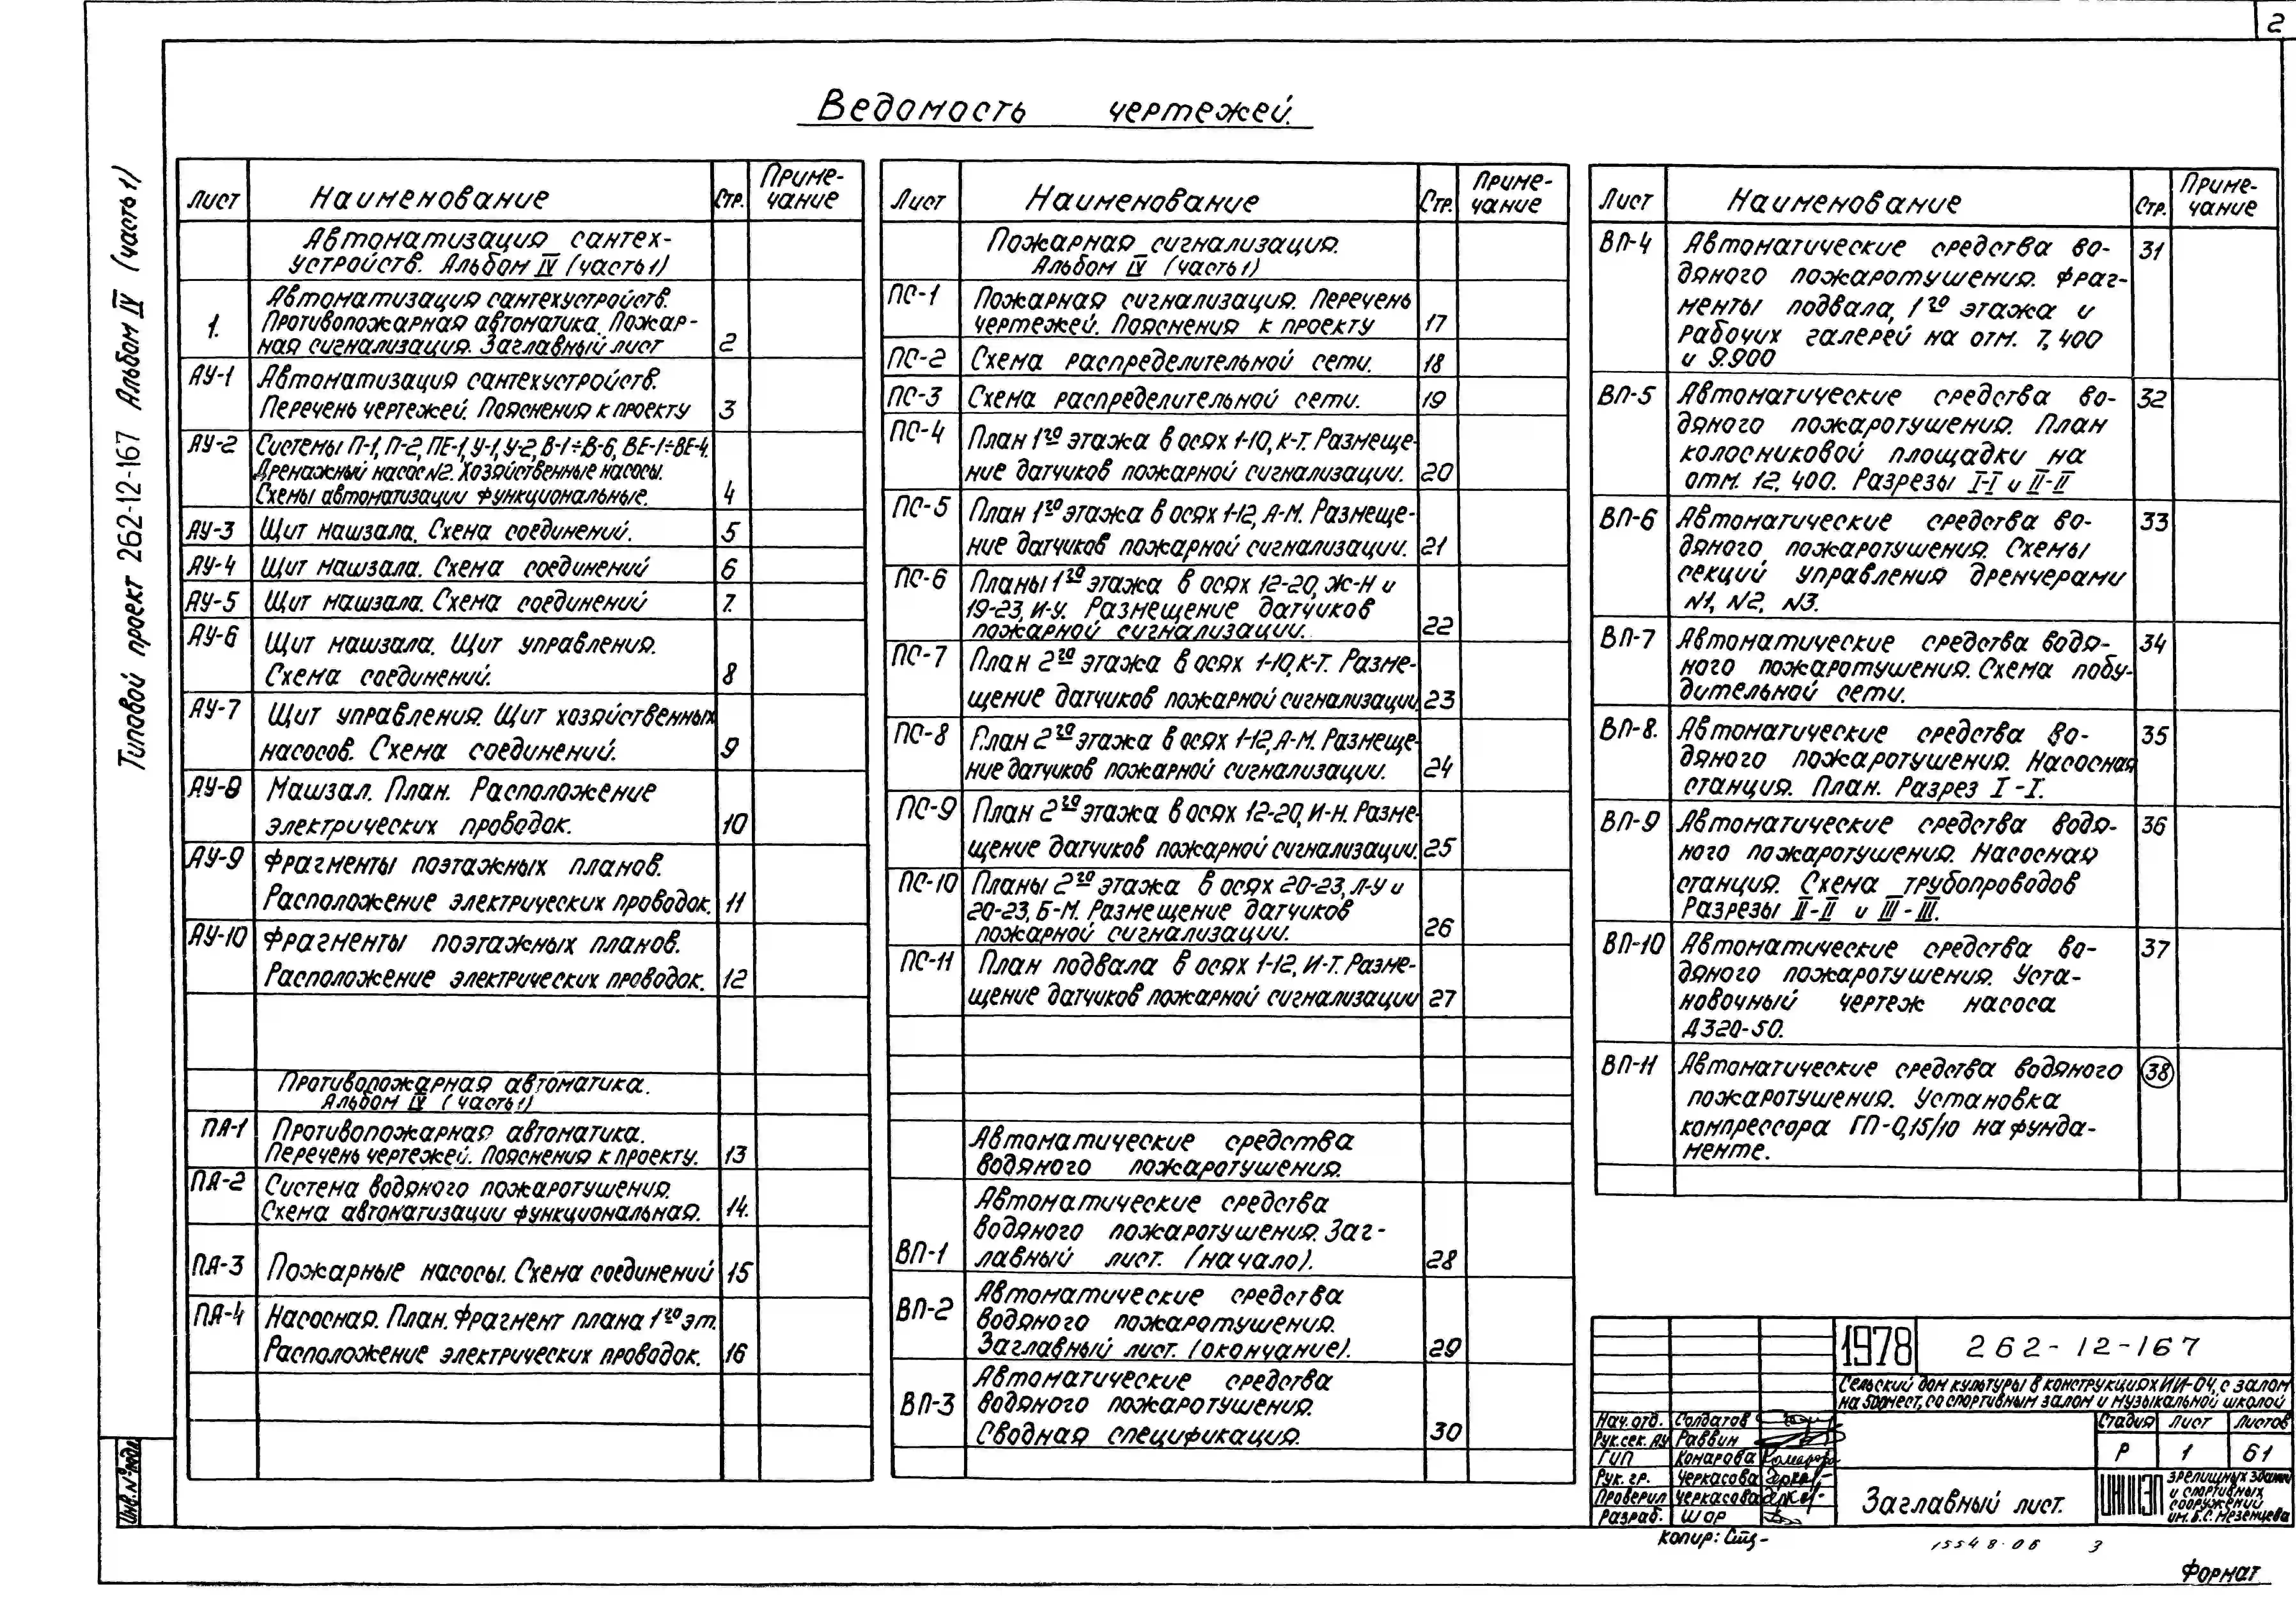 2
Ведомость чертежей.
Типовой проект 262-12-167 Альбом IV (часть 1)
Лист Наименование Стр. Приме-
чание
Автоматизация сантех-
устройств. Альбом IV (часть 1)
Автоматизация сантехустройств.
Противопожарная автоматика. Пожар-
1. ная сигнализация. Заглавный лист 2
АУ-1 Автоматизация сантехустройств.
Перечень чертежей. Пояснения к проекту 3
АУ-2 Системы П-1, П-2, ПЕ-1, У-1, У-2, В-1÷В-6, ВЕ-1÷ВЕ-4.
Дренажный насос №2. Хозяйственные насосы.
Схемы автоматизации функциональные. 4
АУ-3 Щит машзала. Схема соединений. 5
АУ-4 Щит машзала. Схема соединений 6
АУ-5 Щит машзала. Схема соединений 7.
АУ-6 Щит машзала. Щит управления.
Схема соединений. 8
АУ-7 Щит управления. Щит хозяйственных
насосов. Схема соединений. 9
АУ-8 Машзал. План. Расположение
электрических проводок. 10
АУ-9 Фрагменты поэтажных планов.
Расположение электрических проводок. 11
АУ-10 Фрагменты поэтажных планов.
Расположение электрических проводок. 12
Противопожарная автоматика.
Альбом IV (часть 1)
ПА-1 Противопожарная автоматика.
Перечень чертежей. Пояснения к проекту. 13
ПА-2 Система водяного пожаротушения.
Схема автоматизации функциональная. 14.
ПА-3 Пожарные насосы. Схема соединений 15
ПА-4 Насосная. План. Фрагмент плана 1го эт.
Расположение электрических проводок. 16
Лист Наименование Стр. Приме-
чание
Пожарная сигнализация.
Альбом IV (часть 1)
ПС-1 Пожарная сигнализация. Перечень
чертежей. Пояснения к проекту 17
ПС-2 Схема распределительной сети. 18
ПС-3 Схема распределительной сети. 19
ПС-4 План 1го этажа в осях 1-10, К-Т. Размеще-
ние датчиков пожарной сигнализации. 20
ПС-5 План 1го этажа в осях 1-12, А-М. Размеще-
ние датчиков пожарной сигнализации. 21
ПС-6 Планы 1го этажа в осях 12-20, Ж-Н и
19-23, И-У. Размещение датчиков
пожарной сигнализации. 22
ПС-7 План 2го этажа в осях 1-10, К-Т. Разме-
щение датчиков пожарной сигнализации. 23
ПС-8 План 2го этажа в осях 1-12, А-М. Размеще-
ние датчиков пожарной сигнализации. 24
ПС-9 План 2го этажа в осях 12-20, И-Н. Разме-
щение датчиков пожарной сигнализации. 25
ПС-10 Планы 2го этажа в осях 20-23, Л-У и
20-23, Б-М. Размещение датчиков
пожарной сигнализации. 26
ПС-11 План подвала в осях 1-12, И-Т. Разме-
щение датчиков пожарной сигнализации 27
Автоматические средства
водяного пожаротушения.
Автоматические средства
водяного пожаротушения. Заг-
ВП-1 лавный лист. (начало). 28
Автоматические средства
ВП-2 водяного пожаротушения.
Заглавный лист. (окончание). 29
Автоматические средства
ВП-3 водяного пожаротушения.
Сводная спецификация. 30
Лист Наименование Стр. Приме-
чание
ВП-4 Автоматические средства во- 31
дяного пожаротушения. Фраг-
менты подвала, 1го этажа и
рабочих галерей на отм. 7,400
и 9.900
ВП-5 Автоматические средства во- 32
дяного пожаротушения. План
колосниковой площадки на
отм. 12,400. Разрезы I-I и II-II
ВП-6 Автоматические средства во- 33
дяного пожаротушения. Схемы
секций управления дренчерами
№1, №2, №3.
ВП-7 Автоматические средства водя- 34
ного пожаротушения. Схема побу-
дительной сети.
ВП-8. Автоматические средства во- 35
дяного пожаротушения. Насосная
станция. План. Разрез I-I.
ВП-9 Автоматические средства водя- 36
ного пожаротушения. Насосная
станция. Схема трубопроводов
Разрезы II-II и III-III.
ВП-10 Автоматические средства во- 37
дяного пожаротушения. Уста-
новочный чертеж насоса
Д320-50.
ВП-11 Автоматические средства водяного 38
пожаротушения. Установка
компрессора ГП-0,15/10 на фунда-
менте.
1978 262-12-167
Сельский дом культуры в конструкциях ИИ-04, с залом
на 500 мест, со спортивным залом и музыкальной школой
Нач. отд. Солдатов Стадия Лист Листов
Рук. сек. АУ Раввин Р 1 61
ГИП Комарова
Рук. гр. Черкасова
Проверил Черкасова
Разраб. Шор
Заглавный лист.
ЦНИИЭП зрелищных зданий
и спортивных
сооружений
им. Б.С. Мезенцева
Копир:
15548-06 3
Формат
Инв. № подл